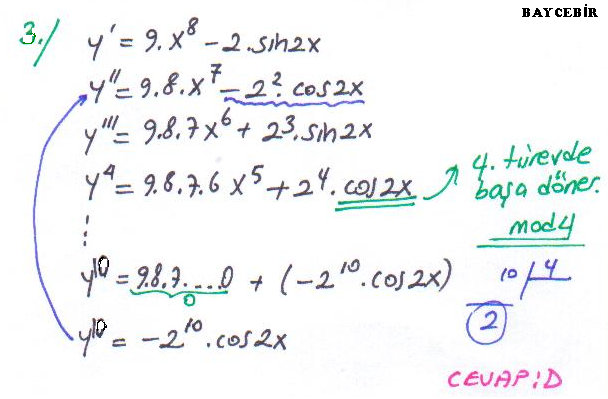 BAYCEBİR
3./ y' = 9.x⁸ - 2.sin2x
y'' = 9.8.x⁷ - 2².cos2x
y''' = 9.8.7x⁶ + 2³.sin2x
y⁴ = 9.8.7.6x⁵ + 2⁴.cos2x
4. türevde
başa döner.
mod4
⋮
y¹⁰ = 9.8.7....0 + (-2¹⁰.cos2x)
0
10 | 4
2
y¹⁰ = -2¹⁰.cos2x
CEVAP:D